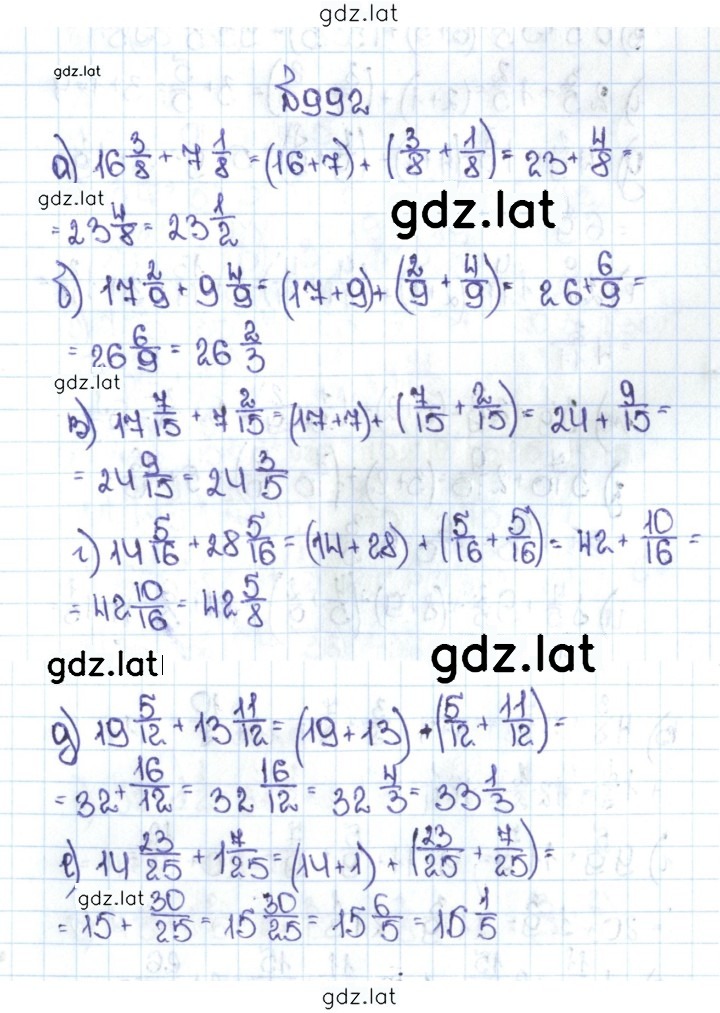 gdz.lat
gdz.lat
№992
а) 16 3/8 + 7 1/8 = (16+7) + (3/8 + 1/8) = 23 + 4/8 =
gdz.lat
gdz.lat
= 23 4/8 = 23 1/2
б) 17 2/9 + 9 4/9 = (17+9) + (2/9 + 4/9) = 26 + 6/9 =
= 26 6/9 = 26 2/3
gdz.lat
в) 17 7/15 + 7 2/15 = (17+7) + (7/15 + 2/15) = 24 + 9/15 =
= 24 9/15 = 24 3/5
г) 14 5/16 + 28 5/16 = (14+28) + (5/16 + 5/16) = 42 + 10/16 =
= 42 10/16 = 42 5/8
gdz.lat
gdz.lat
д) 19 5/12 + 13 11/12 = (19+13) + (5/12 + 11/12) =
= 32 + 16/12 = 32 16/12 = 32 4/3 = 33 1/3
е) 14 23/25 + 1 7/25 = (14+1) + (23/25 + 7/25) =
gdz.lat
= 15 + 30/25 = 15 30/25 = 15 6/5 = 16 1/5
gdz.lat